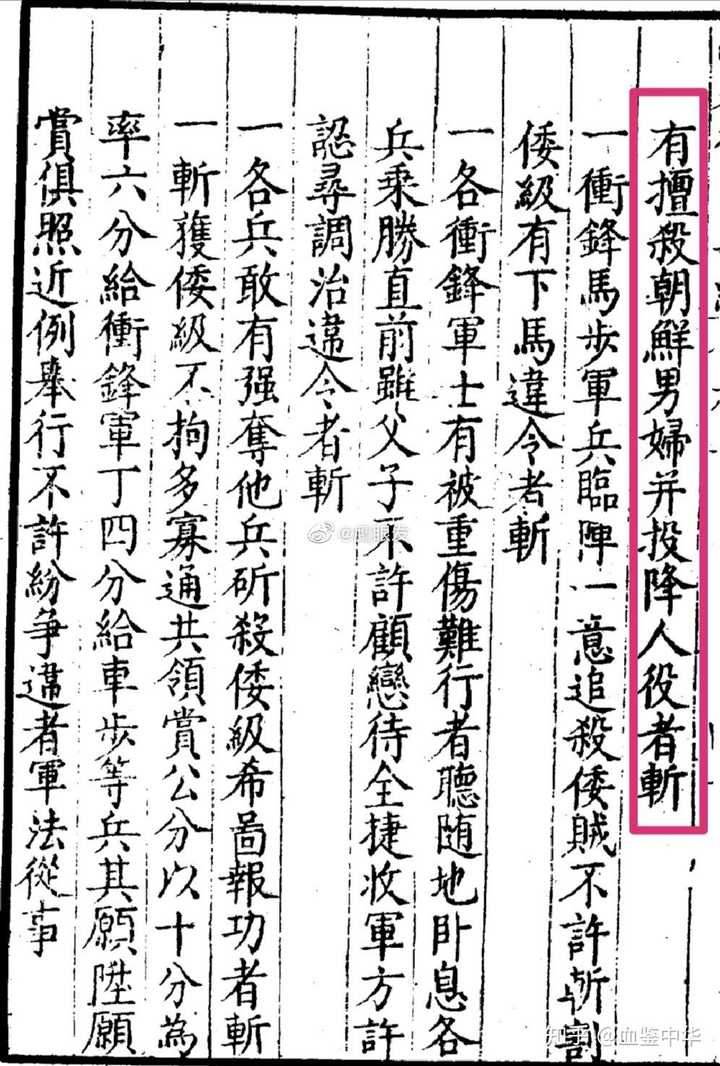 有擅殺朝鮮男婦并投降人役者斬
一衝鋒馬步軍兵臨陣一意追殺倭賊不許斫割
倭級有下馬違令者斬
一各衝鋒軍士有被重傷難行者聽隨地卧息各
兵乘勝直前雖父子不許顧戀待全捷收軍方許
認尋調治違令者斬
一各兵敢有强奪他兵斫殺倭級希啚報功者斬
一斬獲倭級不拘多寡通共領賞公分以十分為
率六分給衝鋒軍丁四分給車步等兵其願陞願
賞俱照近例舉行不許紛爭違者軍法從事
知乎 @血鉴中华